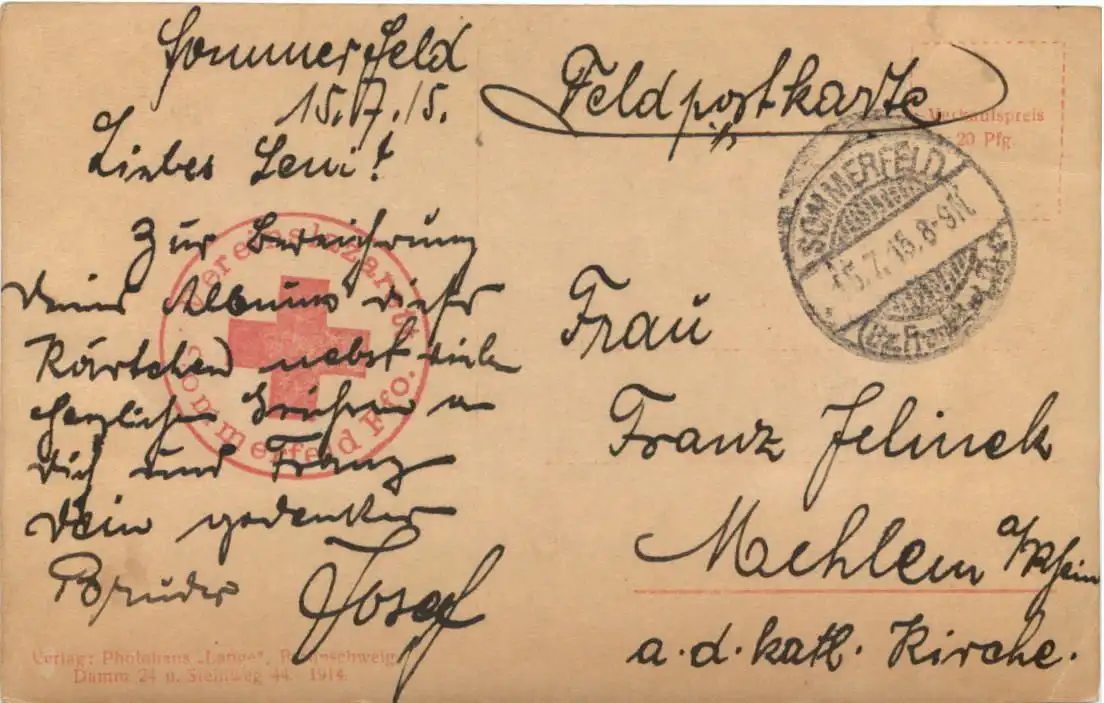 Sommerfeld
15.7.15.
Liebes Leni!
Zur Bereicherung
Deines Albums dieses
Kärtchen nebst vielen
herzlichen Grüßen an
Dich und Franz
Dein gedenkender
Bruder Josef
Verlag: Photohaus „Lange“, Braunschweig,
Damm 24 u. Steinweg 44. 1914.
Vereinslazarett
Sommerfeld Ffo.
Feldpostkarte
Verkaufspreis
20 Pfg.
SOMMERFELD
15.7.15.8-9N.
(Bz. Frankfurt, Oder)
Frau
Franz Jelinek
Mehlem a/Rhein
a. d. kath. Kirche.